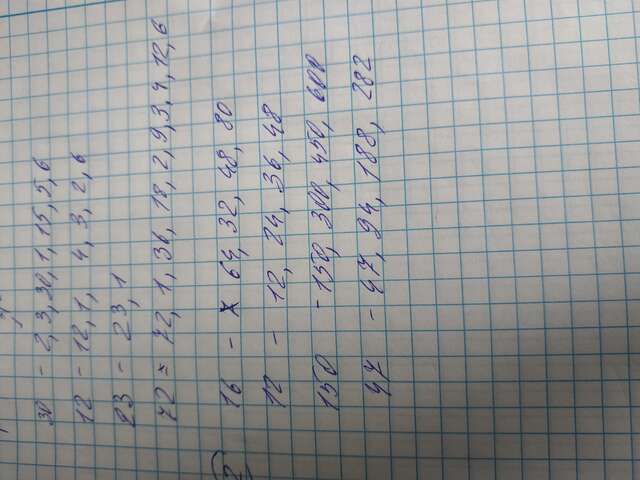 30 - 2, 3, 30, 1, 15, 5, 6
12 - 12, 1, 4, 3, 2, 6
23 - 23, 1
72 = 72, 1, 36, 18, 2, 9, 3, 4, 12, 6
2
16 - 64, 32, 48, 80
12 - 12, 24, 36, 48
150 - 150, 300, 450, 600
47 - 47, 94, 188, 282